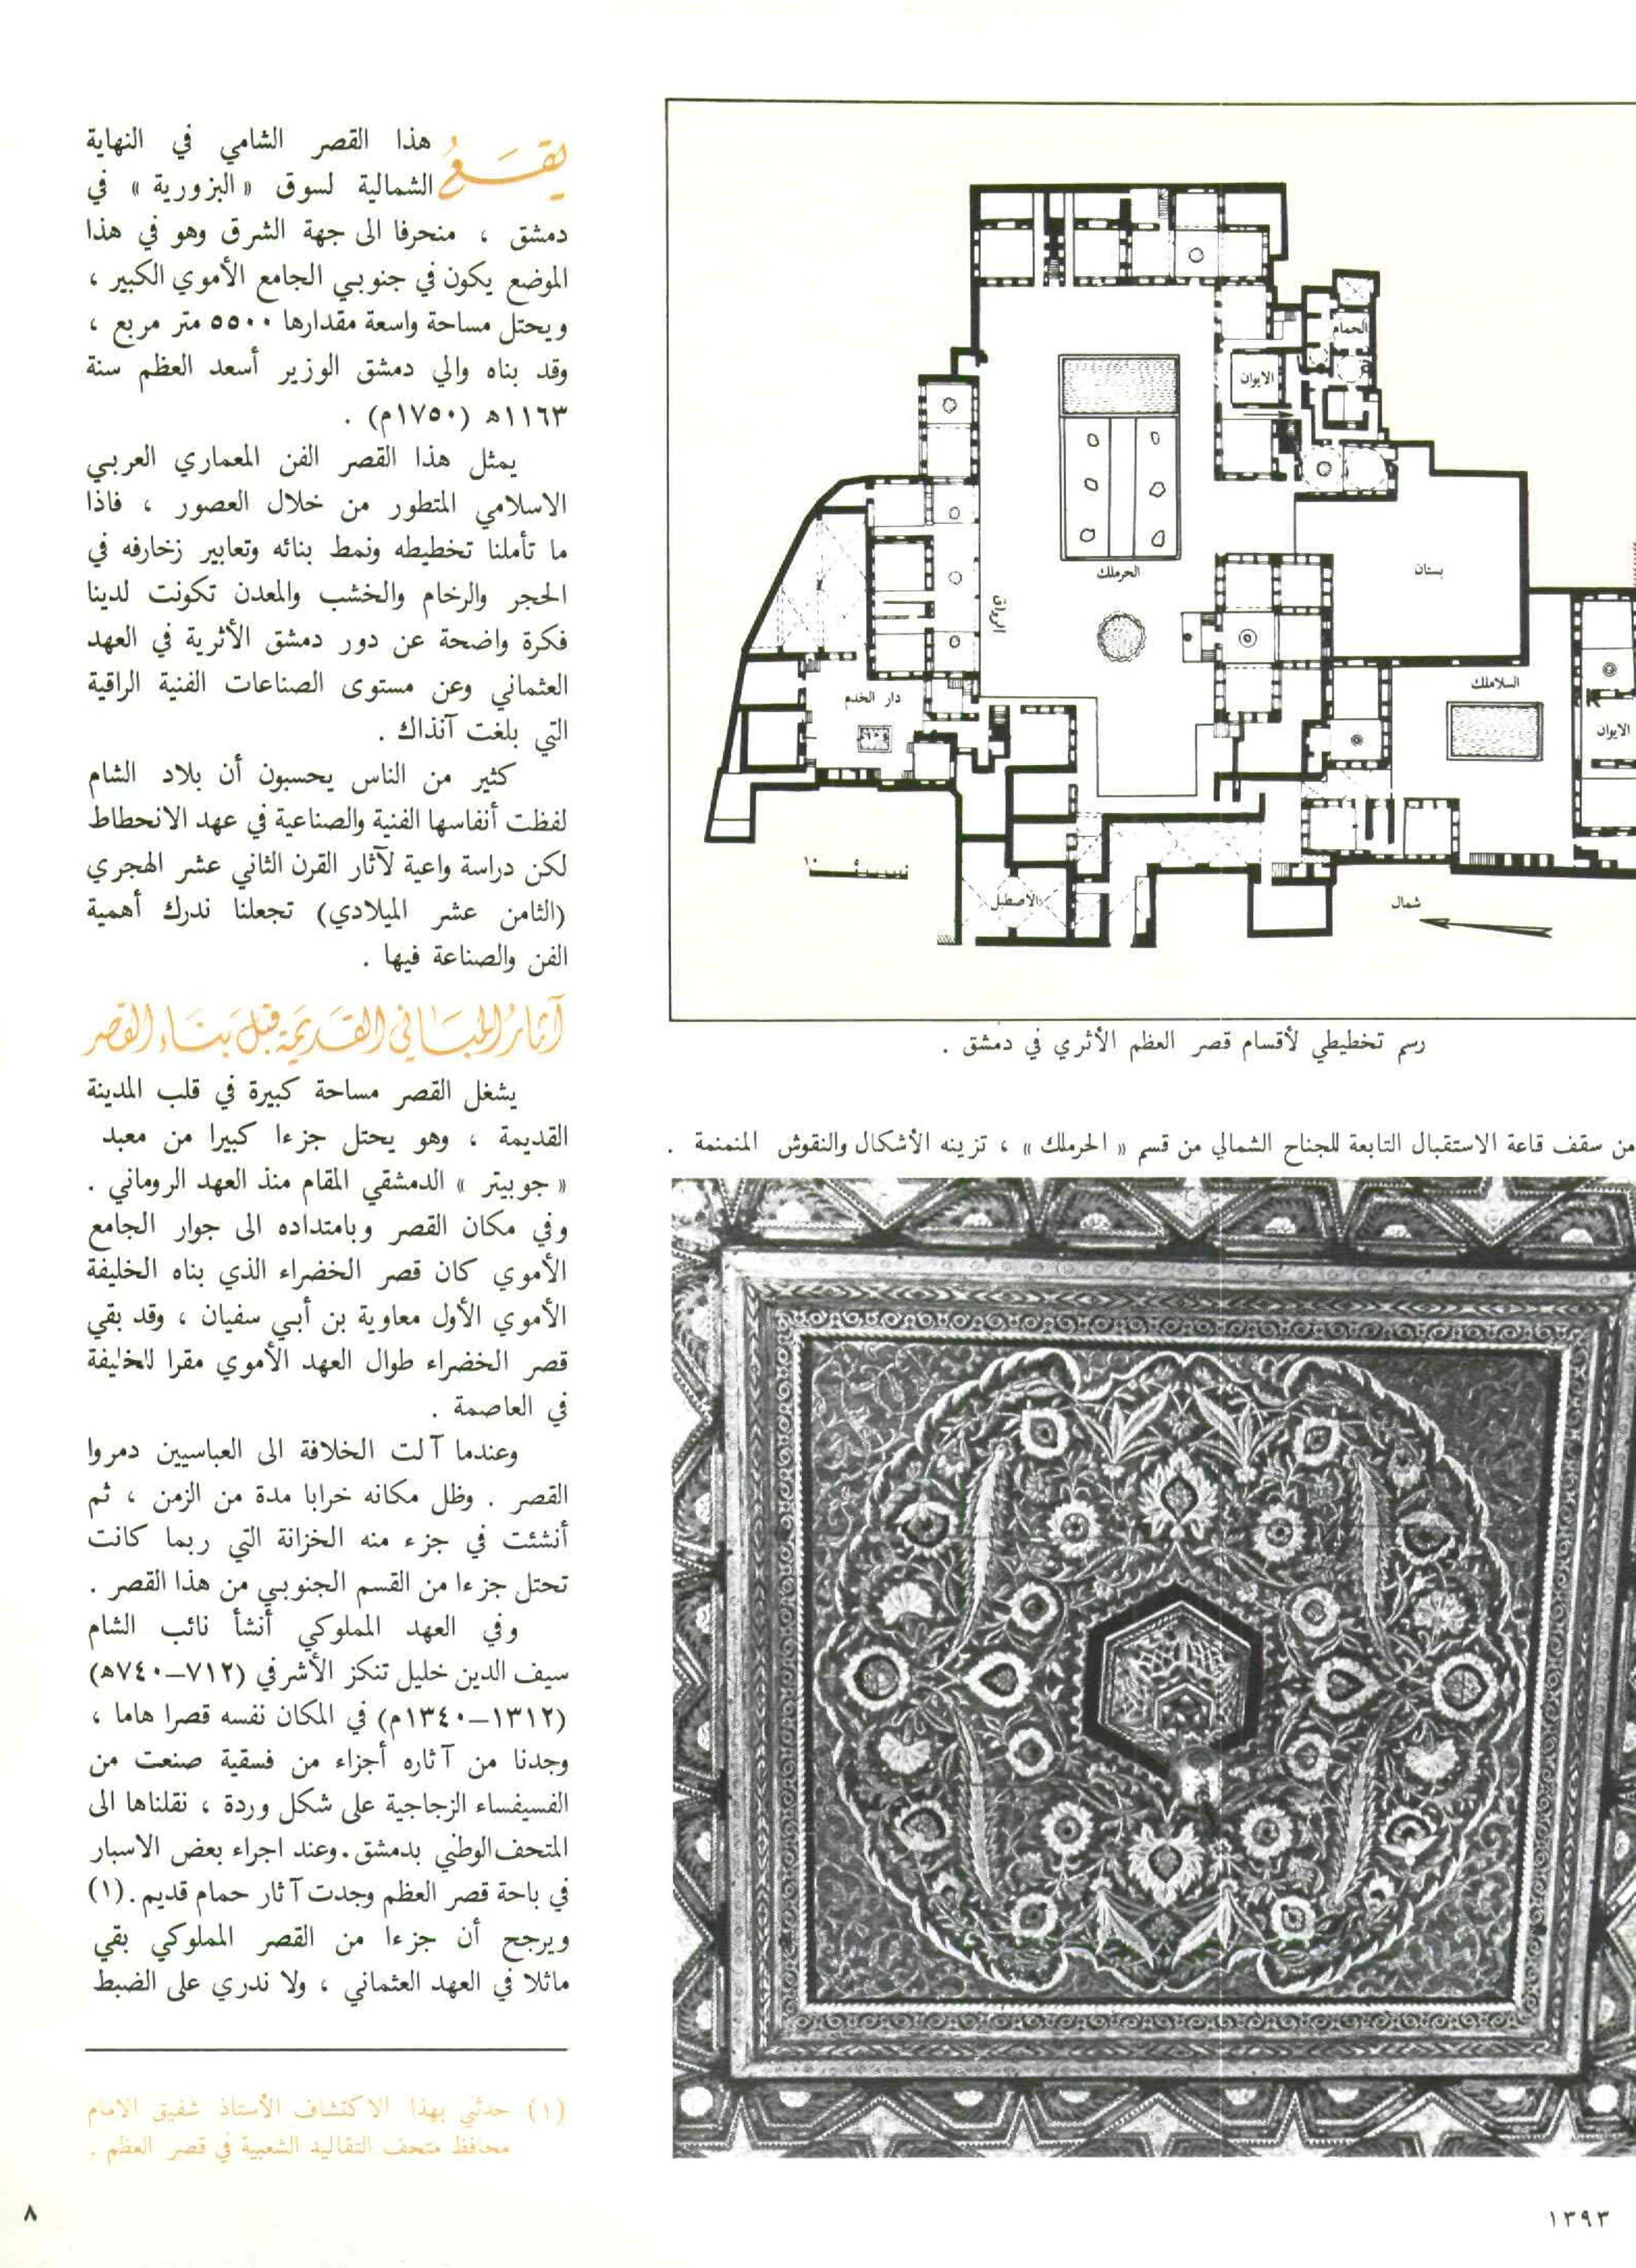 يقع هذا القصر الشامي في النهاية
الشمالية لسوق « البزورية » في
دمشق ، منحرفا الى جهة الشرق وهو في هذا
الموضع يكون في جنوبي الجامع الأموي الكبير ،
ويحتل مساحة واسعة مقدارها ٥٥٠٠ متر مربع ،
وقد بناه والي دمشق الوزير أسعد العظم سنة
١١٦٣ه (١٧٥٠م) .
يمثل هذا القصر الفن المعماري العربي
الاسلامي المتطور من خلال العصور ، فاذا
ما تأملنا تخطيطه ونمط بنائه وتعابير زخارفه في
الحجر والرخام والخشب والمعدن تكونت لدينا
فكرة واضحة عن دور دمشق الأثرية في العهد
العثماني وعن مستوى الصناعات الفنية الراقية
التي بلغت آنذاك .
كثير من الناس يحسبون أن بلاد الشام
لفظت أنفاسها الفنية والصناعية في عهد الانحطاط
لكن دراسة واعية لآثار القرن الثاني عشر الهجري
(الثامن عشر الميلادي) تجعلنا ندرك أهمية
الفن والصناعة فيها .
آثار المباني القديمة قبل بناء القصر
يشغل القصر مساحة كبيرة في قلب المدينة
القديمة ، وهو يحتل جزءا كبيرا من معبد
« جوبيتر » الدمشقي المقام منذ العهد الروماني .
وفي مكان القصر وبامتداده الى جوار الجامع
الأموي كان قصر الخضراء الذي بناه الخليفة
الأموي الأول معاوية بن أبي سفيان ، وقد بقي
قصر الخضراء طوال العهد الأموي مقرا للخليفة
في العاصمة .
وعندما آلت الخلافة الى العباسيين دمروا
القصر . وظل مكانه خرابا مدة من الزمن ، ثم
أنشئت في جزء منه الخزانة التي ربما كانت
تحتل جزءا من القسم الجنوبي من هذا القصر .
وفي العهد المملوكي أنشأ نائب الشام
سيف الدين خليل تنكز الأشرفي (٧١٢–٧٤٠ه)
(١٣١٢–١٣٤٠م) في المكان نفسه قصرا هاما ،
وجدنا من آثاره أجزاء من فسقية صنعت من
الفسيفساء الزجاجية على شكل وردة ، نقلناها الى
المتحف الوطني بدمشق . وعند اجراء بعض الاسبار
في باحة قصر العظم وجدت آثار حمام قديم . (١)
ويرجح أن جزءا من القصر المملوكي بقي
ماثلا في العهد العثماني ، ولا ندري على الضبط
(١) حدثني بهذا الاكتشاف الأستاذ شفيق الامام
محافظ متحف التقاليد الشعبية في قصر العظم .
الحمام
الايوان
الحرملك
الرواق
بستان
السلاملك
الايوان
دار الخدم
الاصطبل
شمال
١٠
رسم تخطيطي لأقسام قصر العظم الأثري في دمشق .
من سقف قاعة الاستقبال التابعة للجناح الشمالي من قسم « الحرملك » ، تزينه الأشكال والنقوش المنمنمة .
١٣٩٣
٨